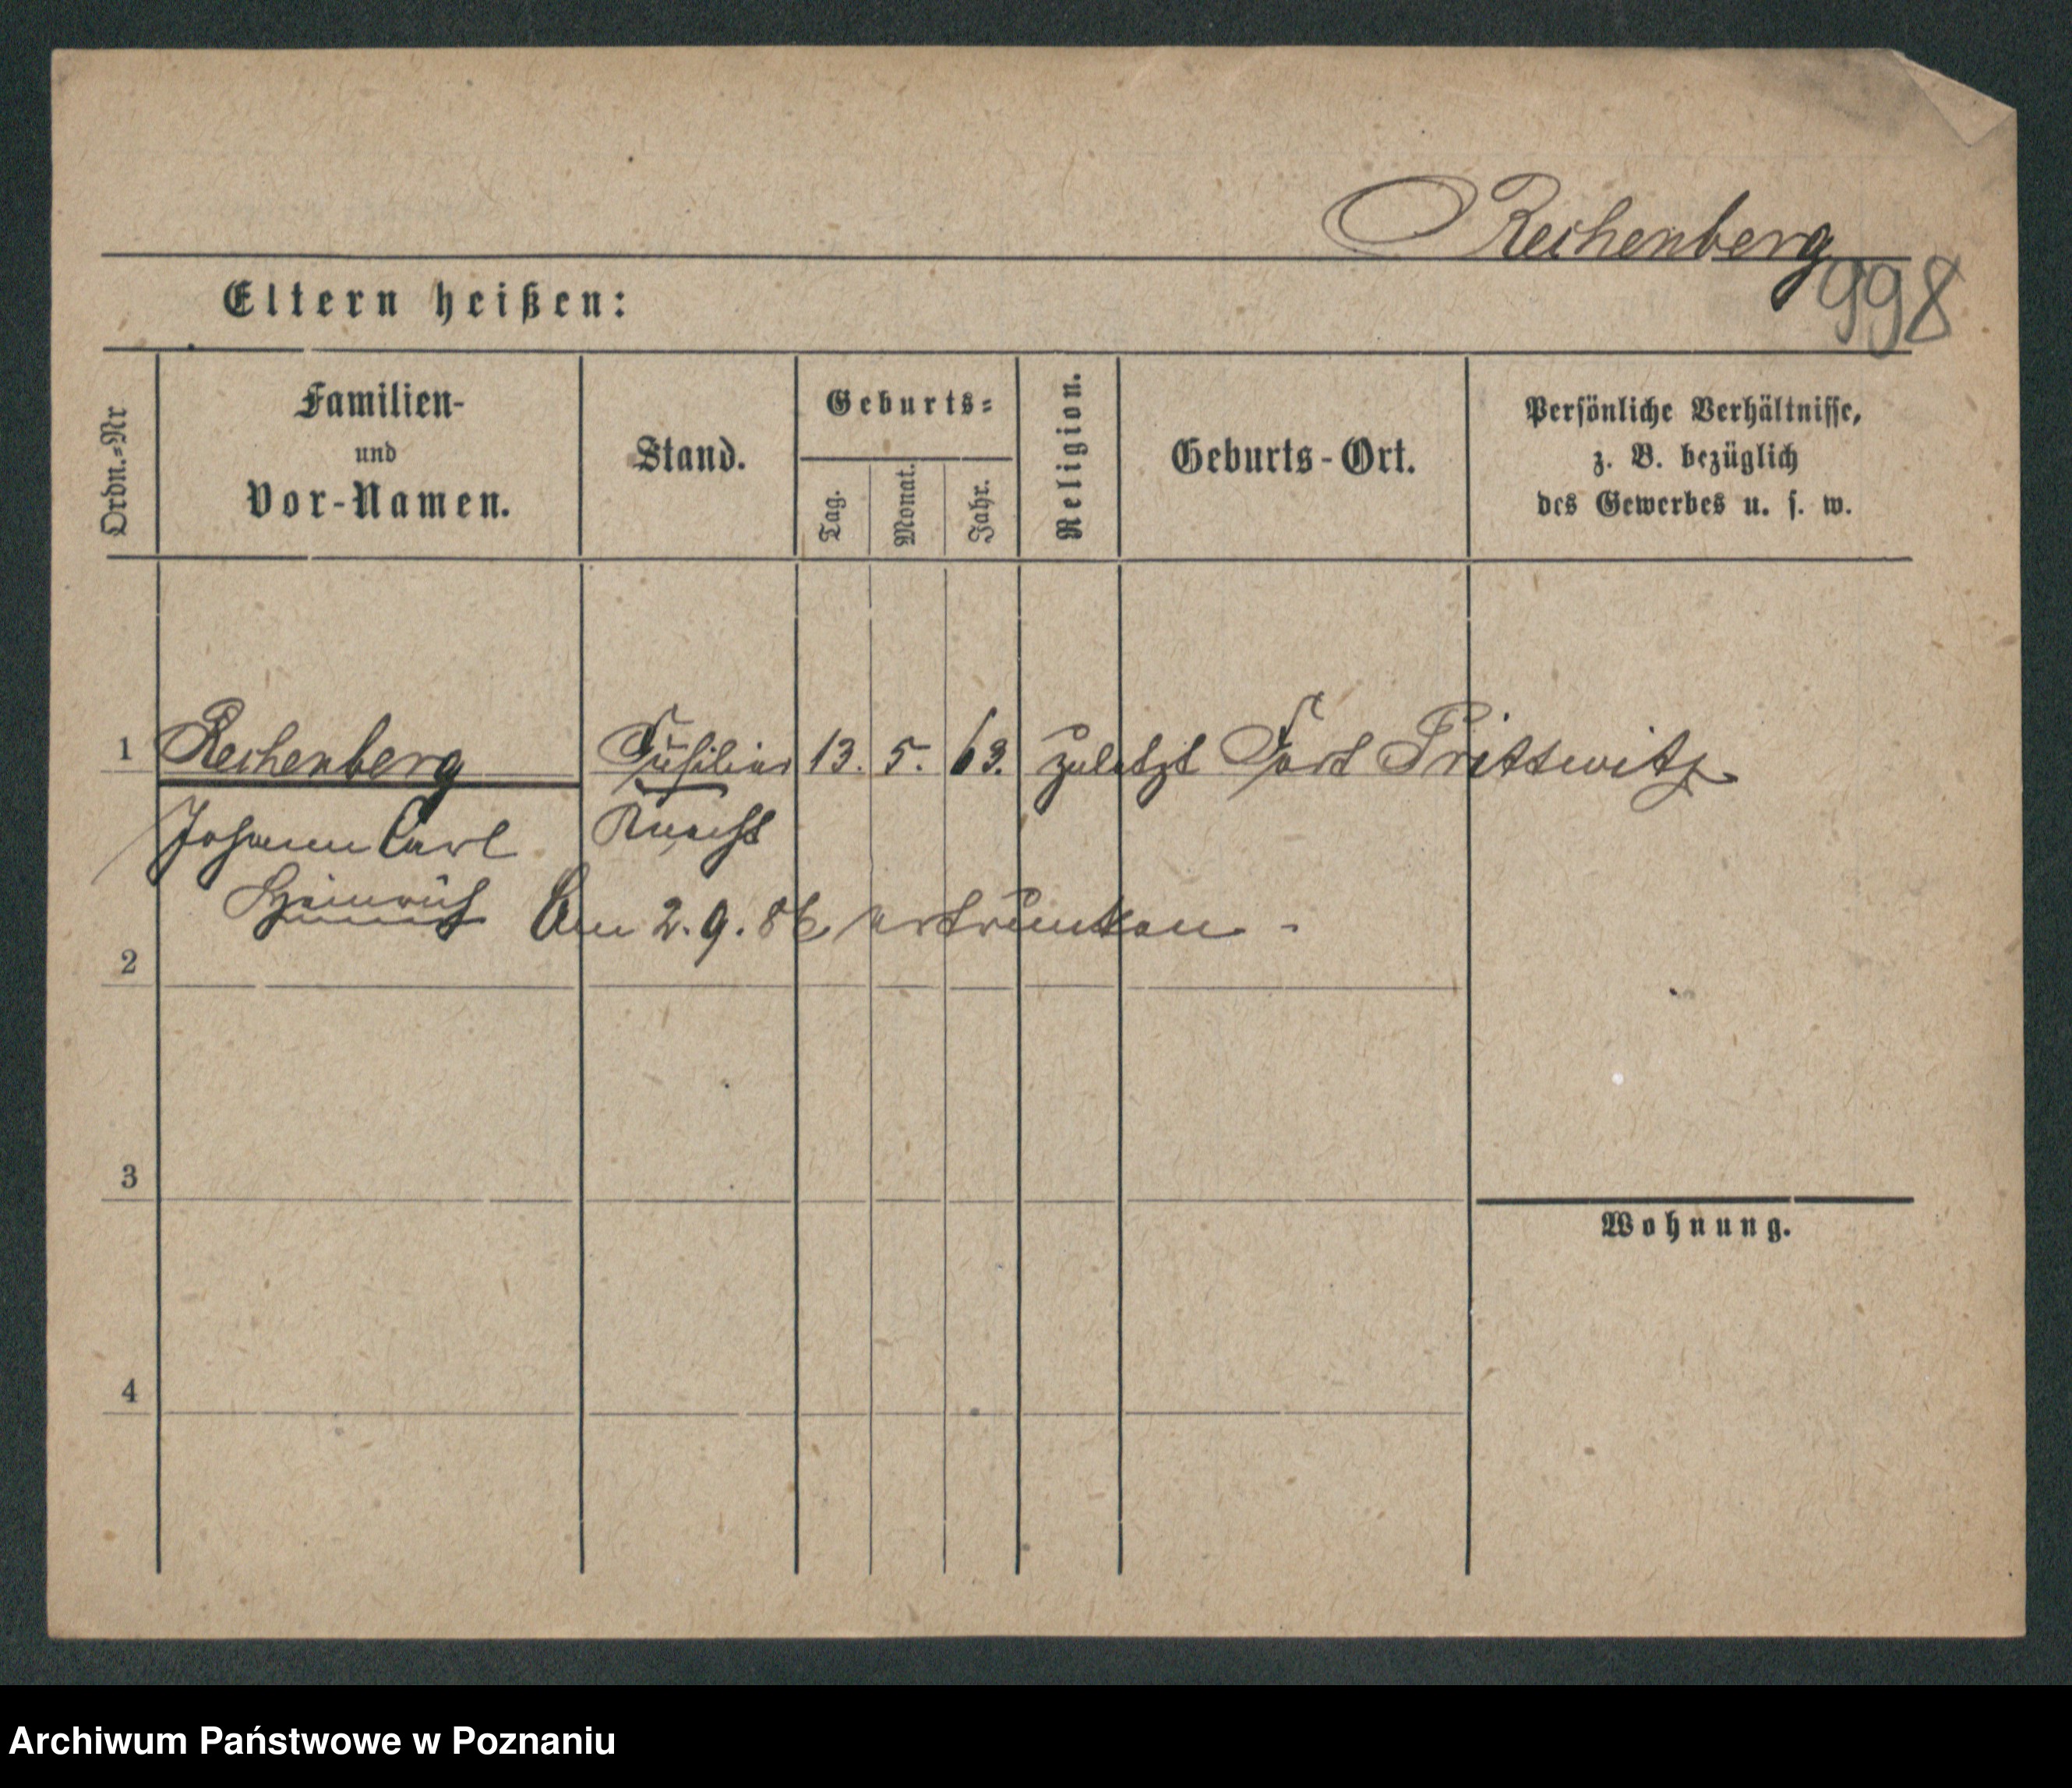 Rechenberg
998
Eltern heißen:
Ordn.-Nr
Familien-
und
Vor-Namen.
Stand.
Geburts-
Tag.
Monat.
Jahr.
Religion.
Geburts-Ort.
Persönliche Verhältnisse,
z. B. bezüglich
des Gewerbes u. s. w.
1 Rechenberg Füsilier 13. 5. 63. zuletzt Fort Prittwitz
Johann Carl Knecht
Heinrich Am 2. 9. 86 ertrunken -
2
3
Wohnung.
4
Archiwum Państwowe w Poznaniu